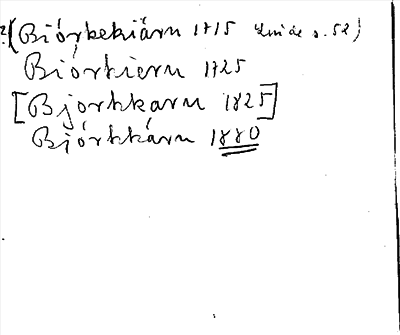 ?(Biórkekiärn 1715 Linde s. 52)
Biórkiern 1725
[Bjorkkarn 1825]
Björkkärn 1880